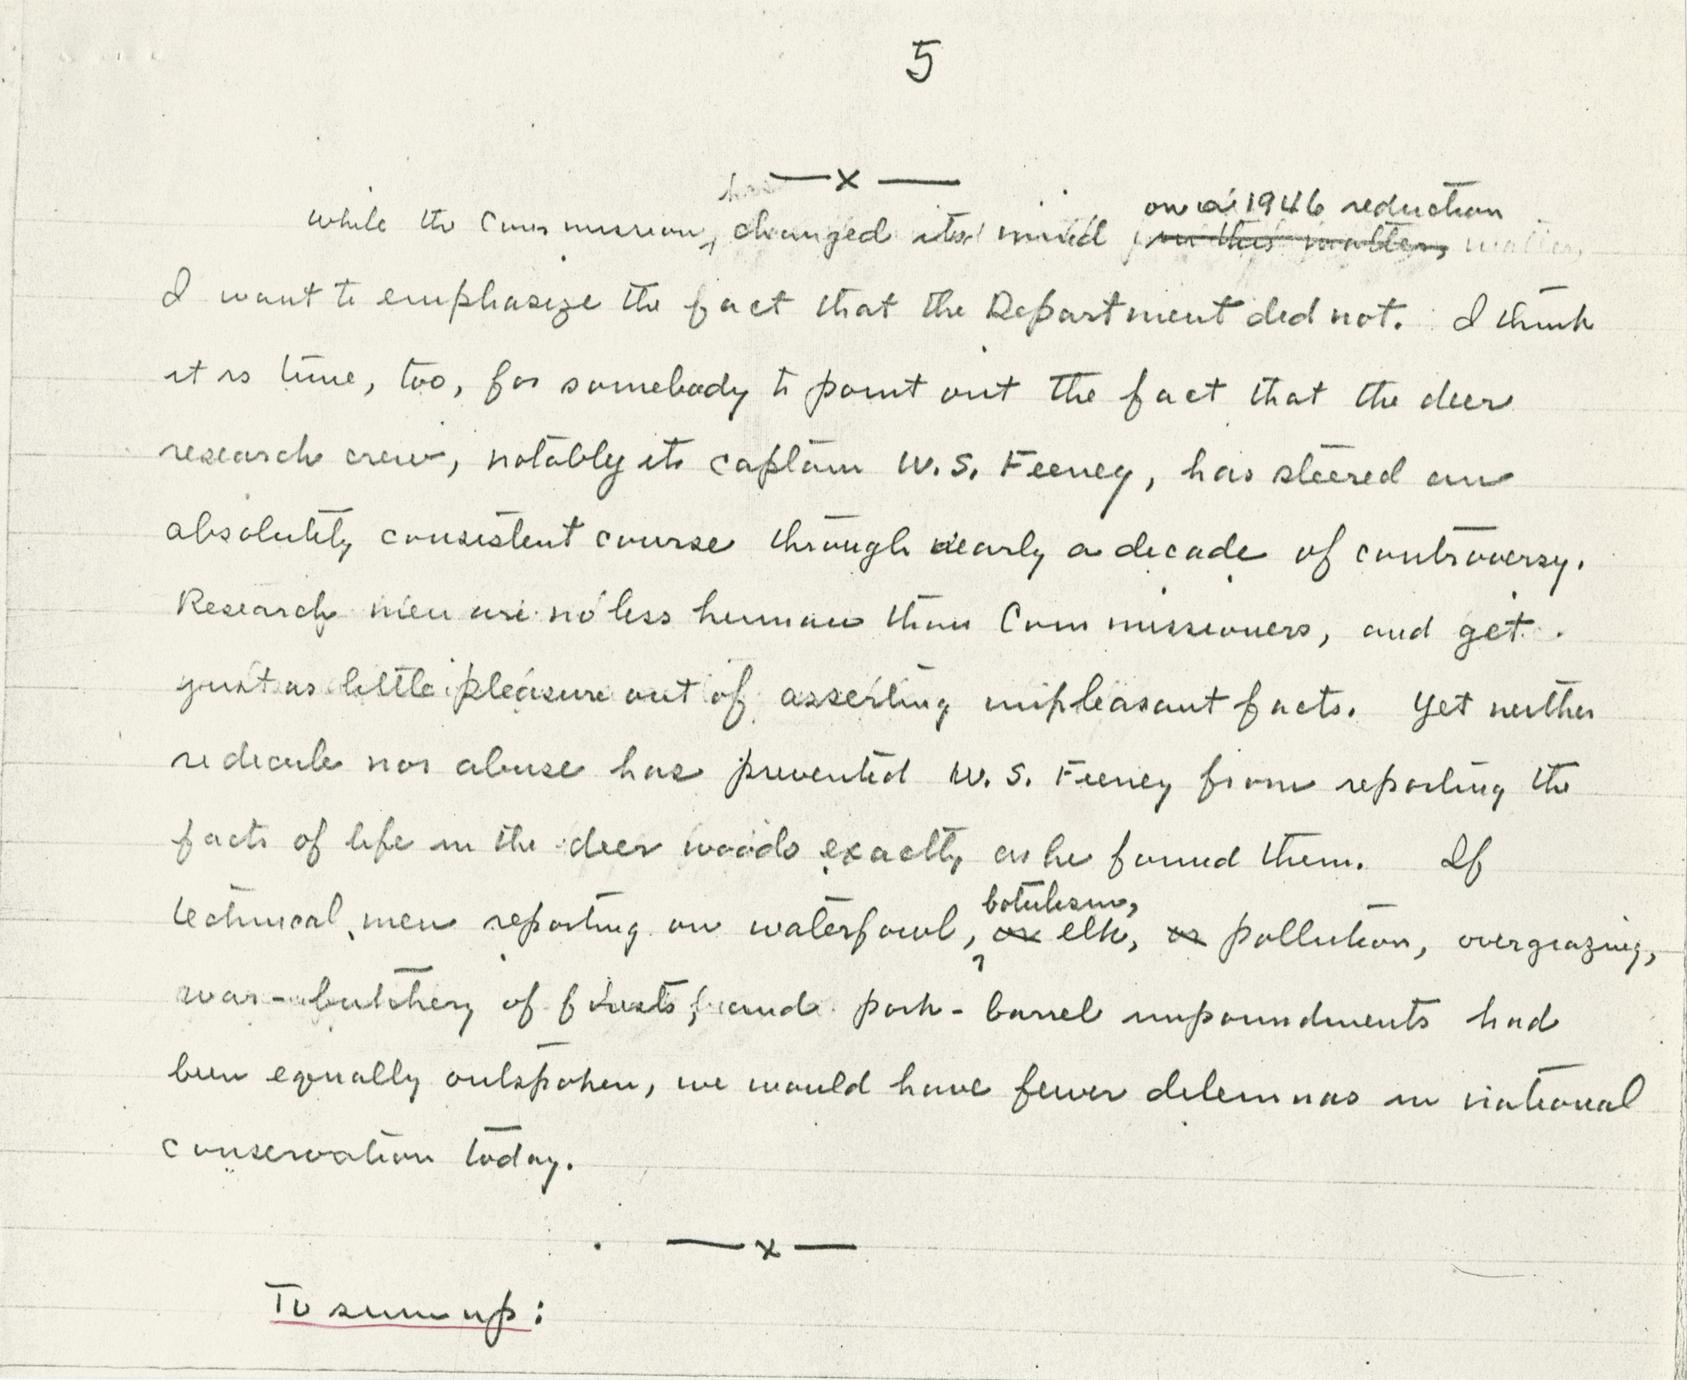 5
—x—
on a 1946 reduction
While the Commission, changed its mind in this matter,
I want to emphasize the fact that the Department did not. I think
it is time, too, for somebody to point out the fact that the deer
research crew, notably its captain W. S. Feeney, has steered an
absolutely consistent course through nearly a decade of controversy.
Research men are no less human than Commissioners, and get
just as little pleasure out of asserting unpleasant facts. Yet neither
ridicule nor abuse has prevented W. S. Feeney from reporting the
facts of life in the deer woods exactly as he found them. If
botulism,
technical men reporting on waterfowl, or elk, or pollution, overgrazing,
war-butchery of forests, and pork-barrel impoundments had
been equally outspoken, we would have fewer dilemnas in national
conservation today.
—x—
To sum up: